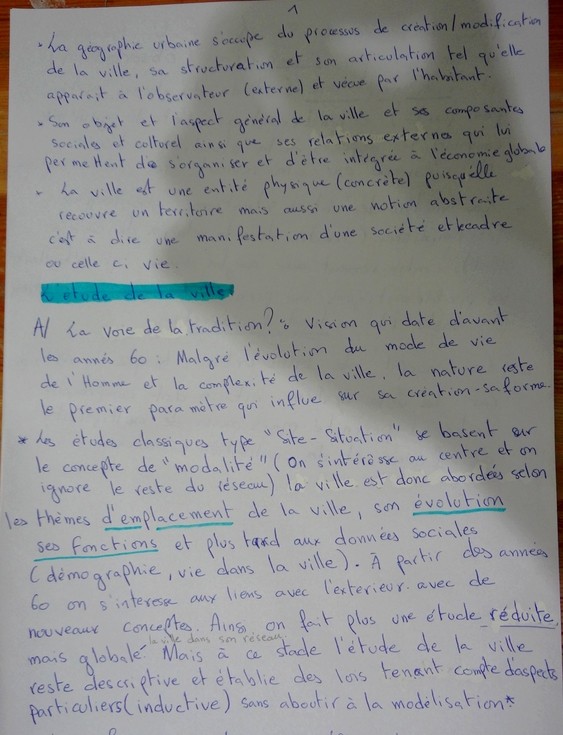 1
• La géographie urbaine s'occupe du processus de création/modification
de la ville, sa structuration et son articulation tel qu'elle
apparait à l'observateur (externe) et vécue par l'habitant.
• Son objet et l'aspect général de la ville et ses composantes
sociales et culturel ainsi que ses relations externes qui lui
permettent de s'organiser et d'être intégrée à l'économie globale
• La ville est une entité physique (concrète) puisqu'elle
recouvre un territoire mais aussi une notion abstraite
c'est à dire une manifestation d'une société et
ou celle ci vie.
L'étude de la ville
A/ La voie de la tradition? : Vision qui date d'avant
les annés 60 : Malgré l'évolution du mode de vie
de l'Homme et la complexité de la ville, la nature reste
le premier paramètre qui influe sur sa création-sa forme.
* Les études classiques type "Site-Situation" se basent sur
le concepte de "modalité" (On s'intéresse au centre et on
ignore le reste du réseau) la ville est donc abordées selon
les thèmes d'emplacement de la ville, son évolution
ses fonctions et plus tard aux données sociales
(démographie, vie dans la ville). À partir des années
60 on s'interesse aux liens avec l'exterieur. avec de
nouveaux conceptes. Ainsi on fait plus une étude réduite
la ville dans son réseau
mais globale. Mais à ce stade l'étude de la ville
reste descriptive et établie des lois tenant compte d'aspects
particuliers (inductive) sans aboutir à la modélisation*